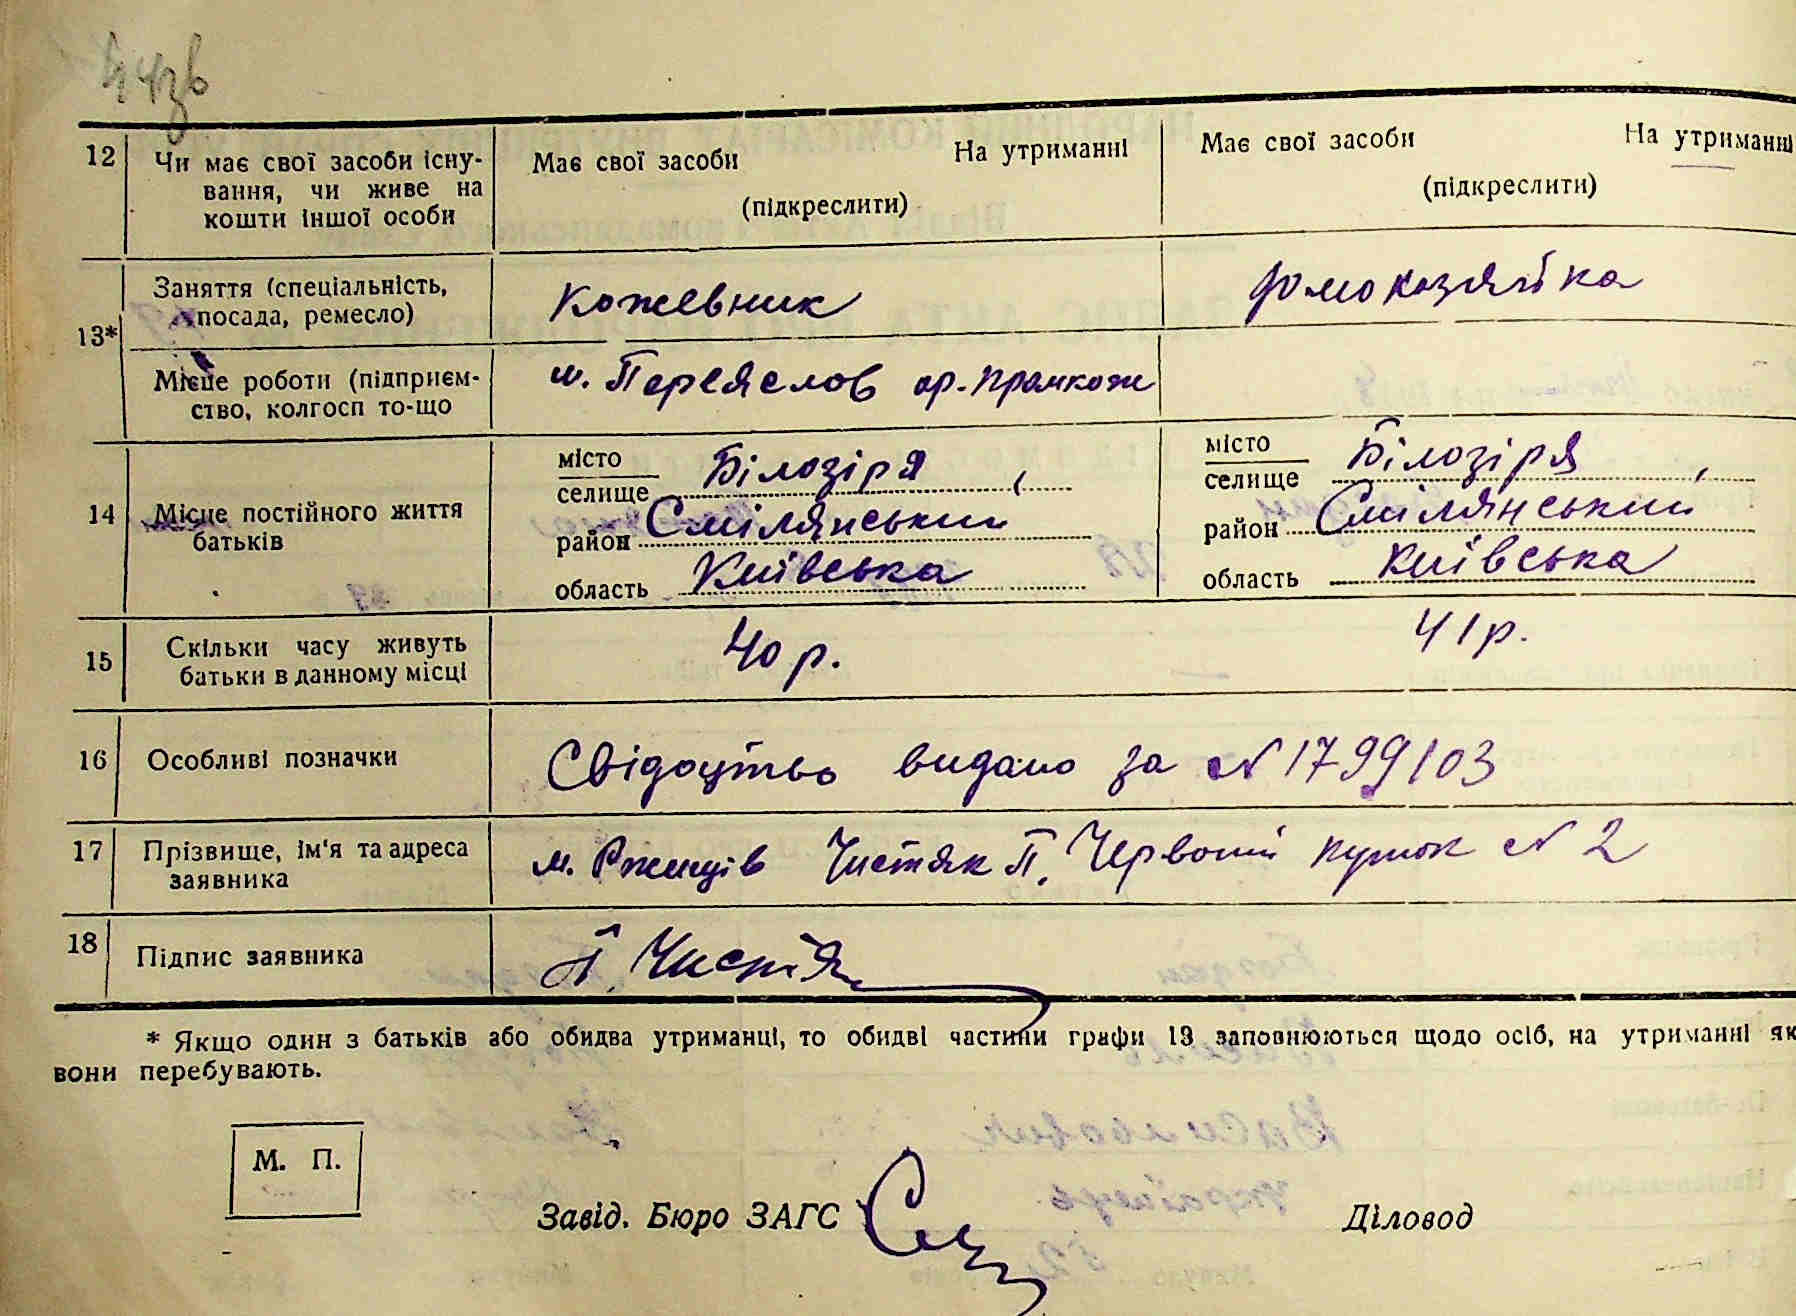 12 Чи має свої засоби існу-
вання, чи живе на
кошти іншої особи
Має свої засоби На утриманні
(підкреслити)
Має свої засоби На утриманні
(підкреслити)
13*
Заняття (спеціальність,
посада, ремесло)
Кожевник
домохазяйка
Місце роботи (підприєм-
ство, колгосп то-що
м. Переяслов ар. Промкож
14 Місце постійного життя
батьків
місто
селище Білозіря,
район Смілянський
область Київська
місто
селище Білозіря,
район Смілянський
область Київська
15 Скільки часу живуть
батьки в данному місці
40 р.
41 р.
16 Особливі позначки
Свідоцтво видано за № 1799103
17 Прізвище, ім'я та адреса
заявника
м. Ржищів Чистяк П. Червоний куток № 2
18 Підпис заявника
П. Чистя
* Якщо один з батьків або обидва утриманці, то обидві частини графи 13 заповнюються щодо осіб, на утриманні як
вони перебувають.
М. П.
Завід. Бюро ЗАГС
Діловод